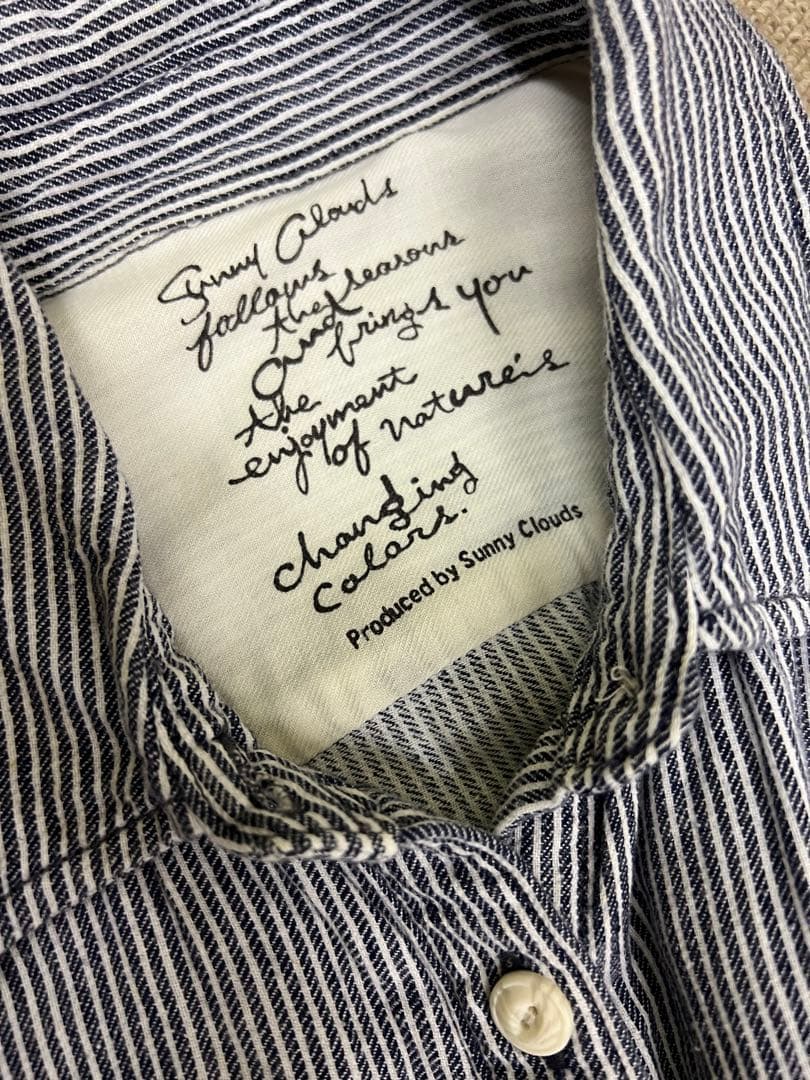 Sunny Clouds
follows
the seasons
and brings you
the
enjoyment
of nature's
changing
colors.
Produced by Sunny Clouds